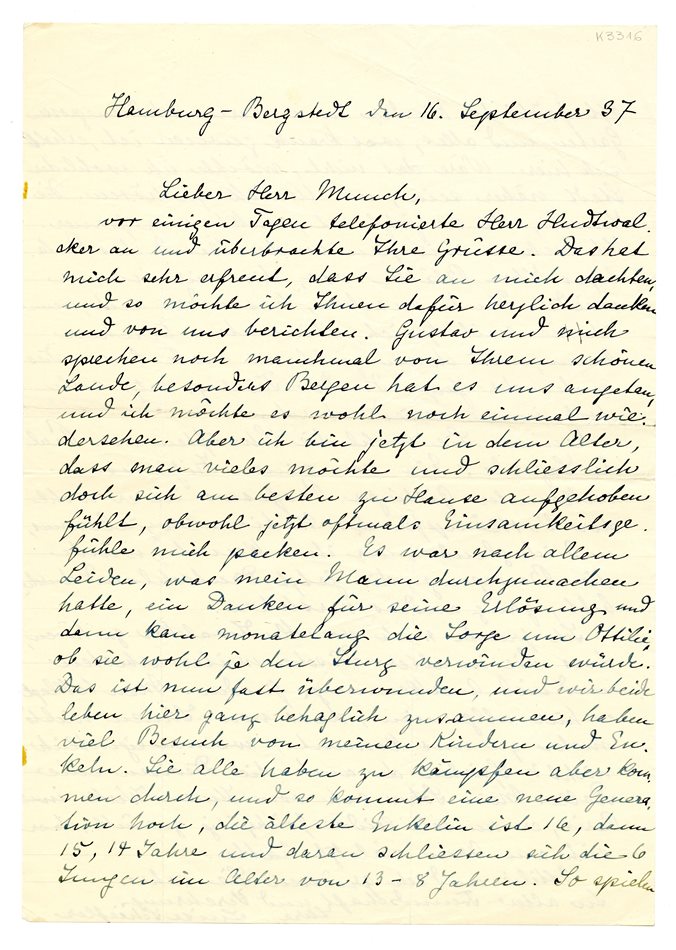 K3316
Hamburg-Bergstedt den 16. September 37
Lieber Herr Munch,
vor einigen Tagen telefonierte Herr Hudtwal-
cker an und überbrachte Ihre Grüsse. Das hat
mich sehr erfreut, dass Sie an mich dachten,
und so möchte ich Ihnen dafür herzlich danken
und von uns berichten. Gustav und mich
sprechen noch manchmal von Ihrem schönen
Lande, besonders Bergen hat es uns angetan,
und ich möchte es wohl noch einmal wie-
dersehen. Aber ich bin jetzt in dem Alter,
dass man vieles möchte und schliesslich
doch sich am besten zu Hause aufgehoben
fühlt, obwohl jetzt oftmals Einsamkeitsge-
fühle mich packen. Es war nach allem
Leiden, was mein Mann durchzumachen
hatte, ein Danken für seine Erlösung und
dann kam monatelang die Sorge um Ottilie,
ob sie wohl je den Sturz verwinden würde.
Das ist nun fast überwunden, und wir beide
leben hier ganz behaglich zusammen, haben
viel Besuch von meinen Kindern und En-
keln. Sie alle haben zu kämpfen aber kom-
men durch, und so kommt eine neue Genera-
tion hoch, die älteste Enkelin ist 16, dann
15, 14 Jahre und daran schliessen sich die 6
Jungen im Alter von 13 - 8 Jahren. So spielen